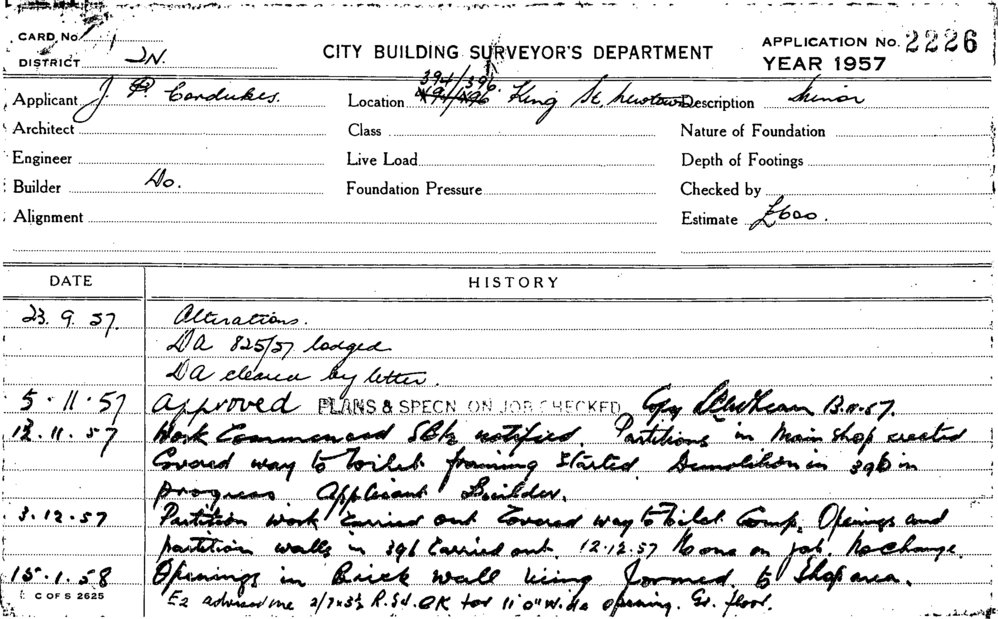 CARD No. 1
DISTRICT IN.
CITY BUILDING SURVEYOR'S DEPARTMENT
APPLICATION No. 2226
YEAR 1957
Applicant J. P. Cordukes.
Location 394/396 King St. Newtown
Description Minor
Architect
Class
Nature of Foundation
Engineer
Live Load
Depth of Footings
Builder Do.
Foundation Pressure
Checked by
Alignment
Estimate £600.
DATE HISTORY
23. 9. 57. Alterations.
DA 825/57 lodged
DA cleared by letter.
5. 11. 57 approved PLANS & SPECN ON JOB CHECKED Copy 13.11.57.
12. 11. 57 Work Commenced notified. Partitions in Main Shop erected
Covered way to toilet framing started Demolition in 396 in
progress Applicant Builder.
3. 12. 57 Partition work carried out Covered way to toilet Comp. Openings and
partition walls in 396 Carried out. 12.12.57 No one on job. No change.
15. 1. 58 Openings in Brick wall being formed to Shop area.
C OF S 2625
Ez advised me 2/7x3½ R.S.J. OK for 11'0" Wide opening. Gr. floor.